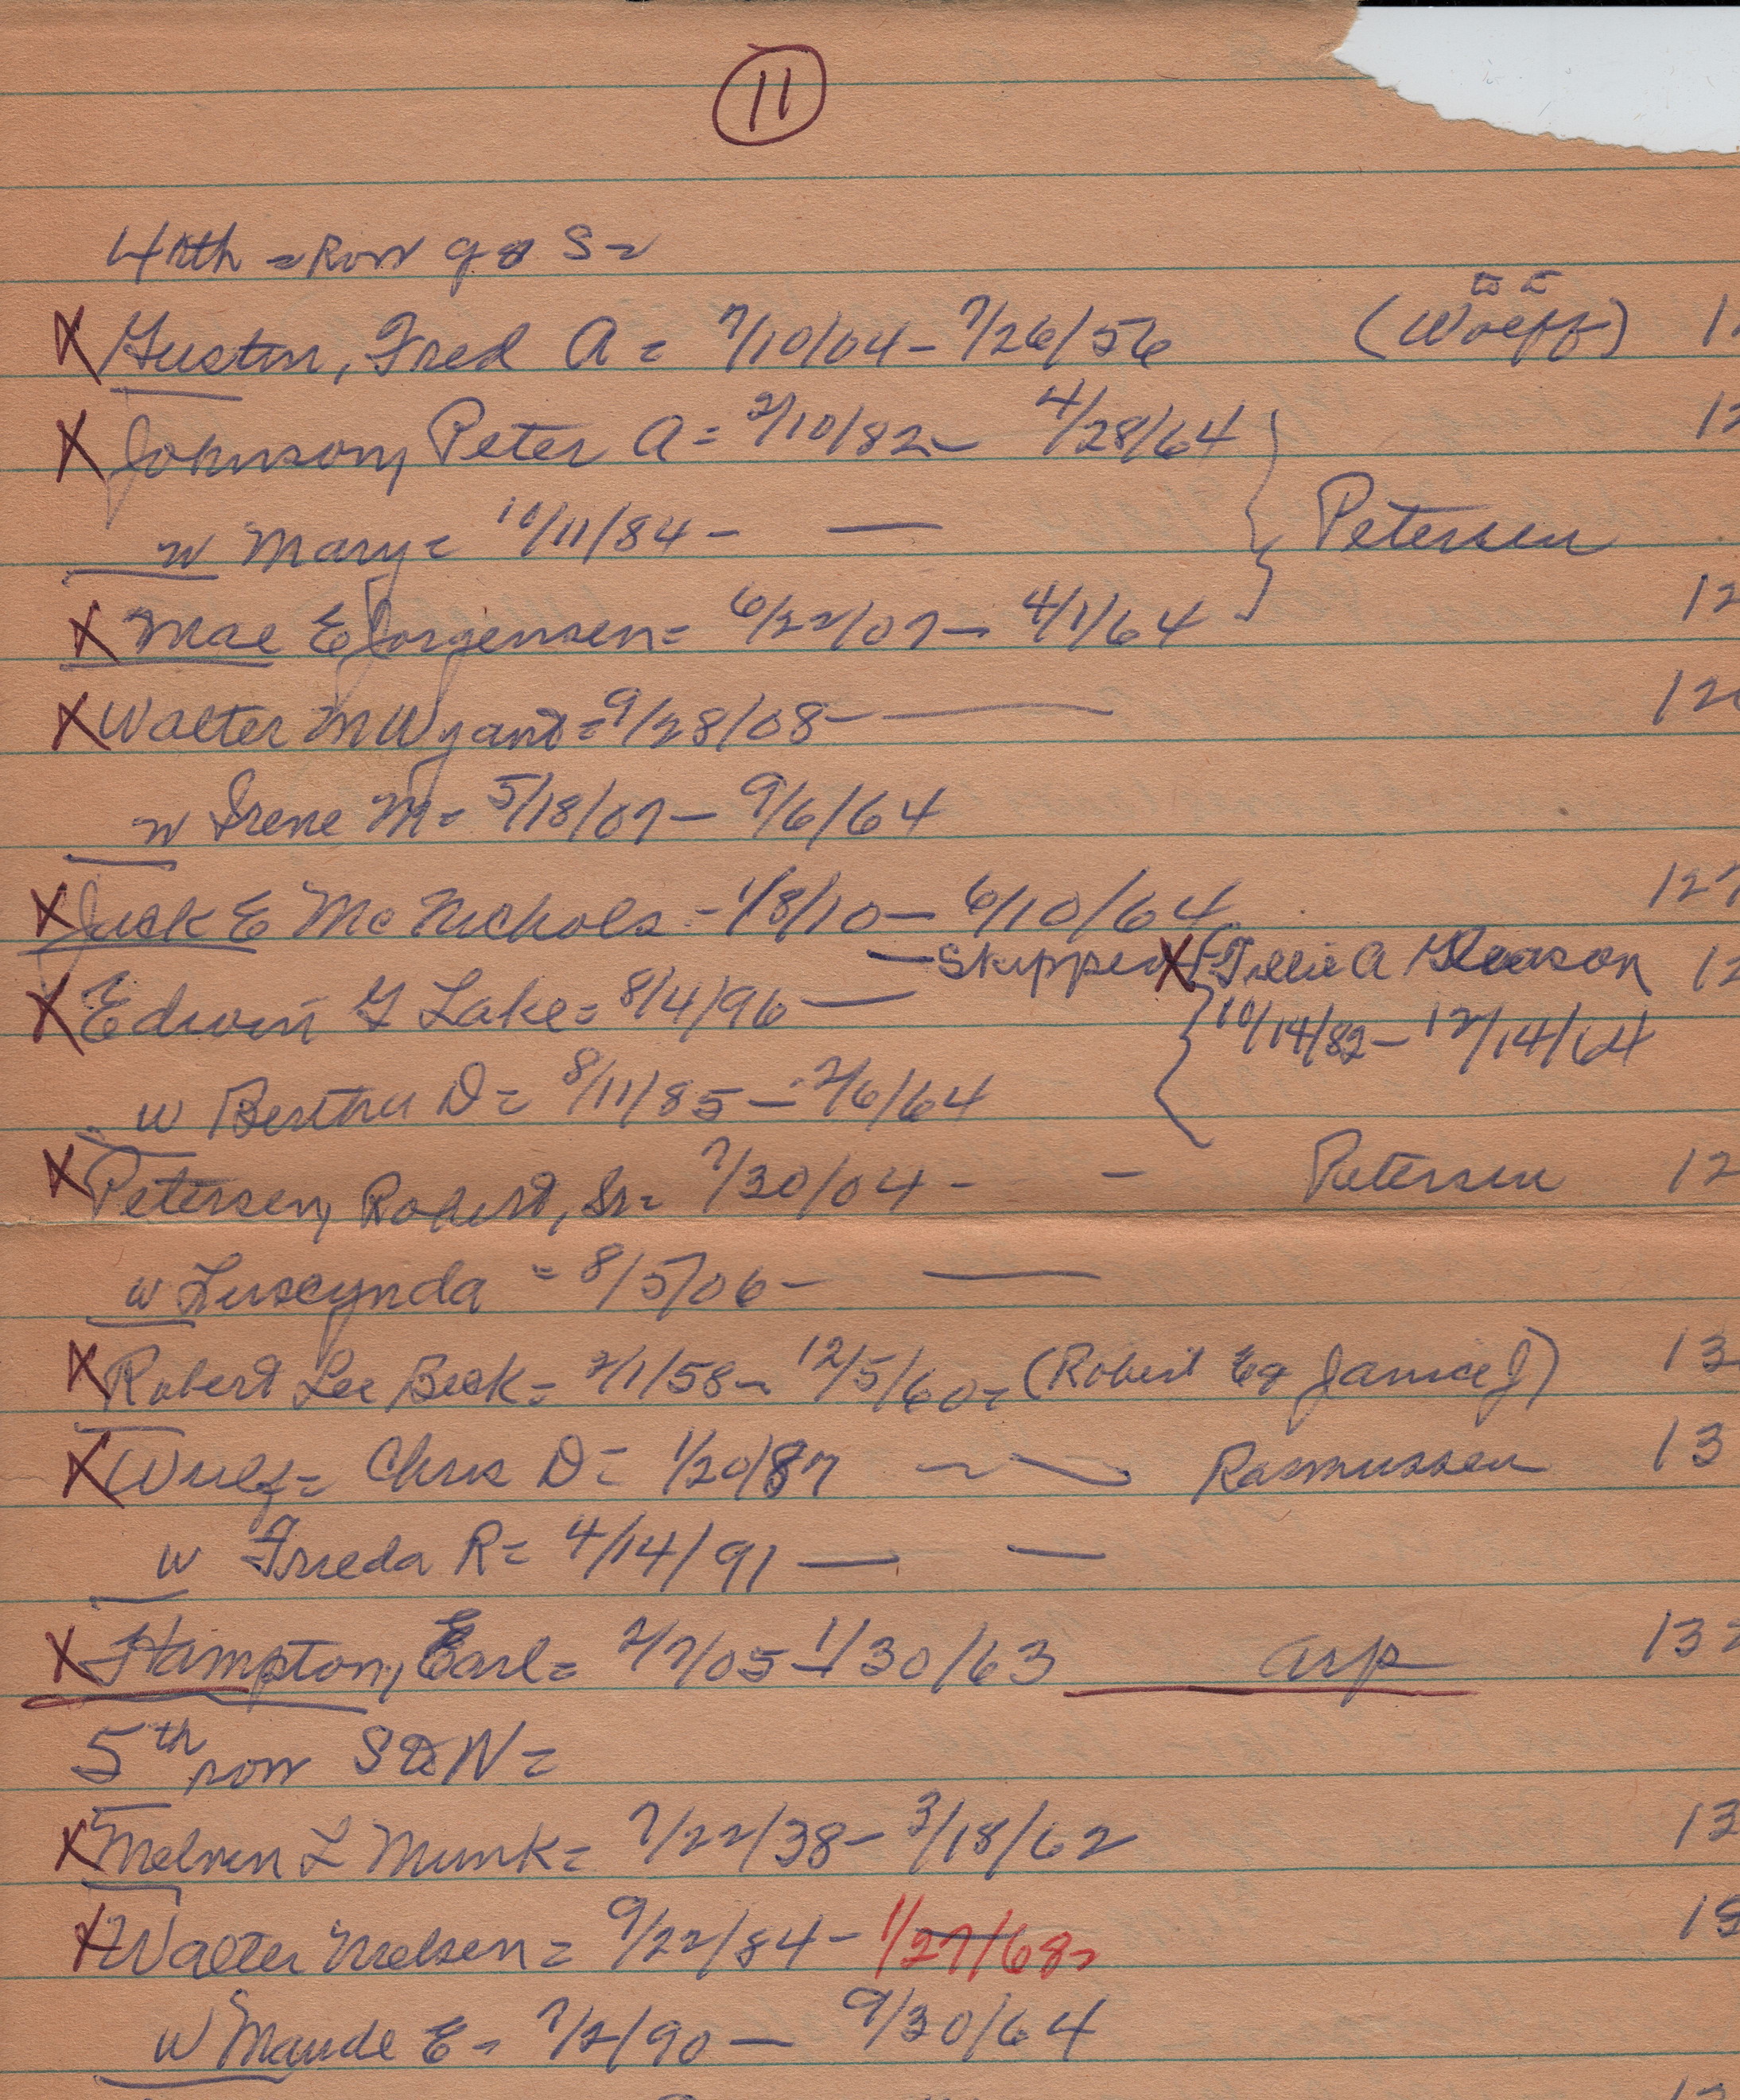 11
4th = Row go S =
X Gustin, Fred A = 7/10/04 - 7/26/56 (Woeff) 1
X Johnson, Peter A = 2/10/82 - 4/28/64 12
w Mary = 10/11/84 - — Petersen
X Mae E Jorgensen = 6/22/07 - 4/1/64 12
X Walter M Wyant = 9/28/08 - — 12
w Irene M = 5/18/07 - 9/6/64
X Jack E McNichols - 1/8/10 - 6/10/64 127
— Skipped X Tillie A Gleason 12
X Edwin G Lake = 8/4/96 — 10/14/82 - 12/14/64
w Bertha D = 8/11/85 - 2/6/64
X Petersen, Robert, Sr = 7/30/04 - - Petersen 12
w Luscynda = 8/5/06 - —
X Robert Lee Beck = 2/1/58 - 12/5/60 = (Robert E & Janice J) 13
X Wulf = Chris D = 1/20/87 - — Rasmussen 13
w Frieda R = 4/14/91 — —
X Hampton, Earl = 2/7/05 - 1/30/63 Arp 13
5th row S to N =
X Melven L Munk = 7/22/38 - 3/18/62 13
X Walter Nielsen = 9/22/84 - 1/27/68 13
w Maude E - 7/2/90 — 9/30/64